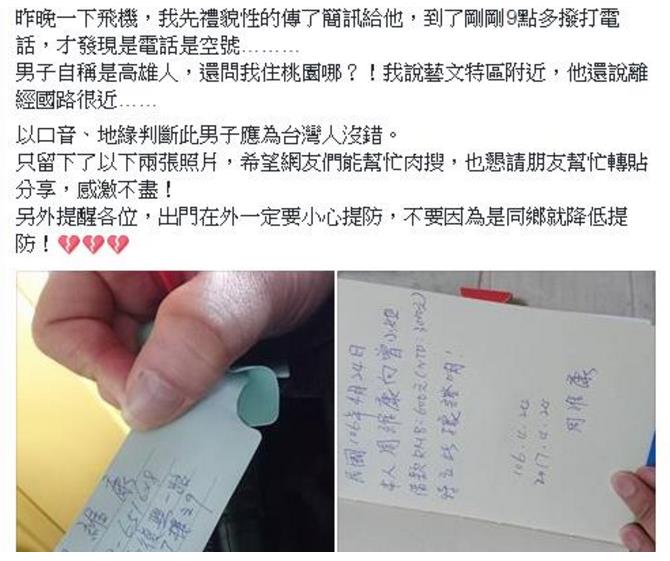 昨晚一下飛機，我先禮貌性的傳了簡訊給他，到了剛剛9點多撥打電
話，才發現是電話是空號………
男子自稱是高雄人，還問我住桃園哪？！我說藝文特區附近，他還說離
經國路很近……
以口音、地緣判斷此男子應為台灣人沒錯。
只留下了以下兩張照片，希望網友們能幫忙肉搜，也懇請朋友幫忙轉貼
分享，感激不盡！
另外提醒各位，出門在外一定要小心提防，不要因為是同鄉就降低提
防！💔💔💔
維康
民國106年4月24日
本人周維康向曾小姐
借款RMB:600元(NTD:3000元)
特立此據證明！
106.4.24
2017.4.24
周維康